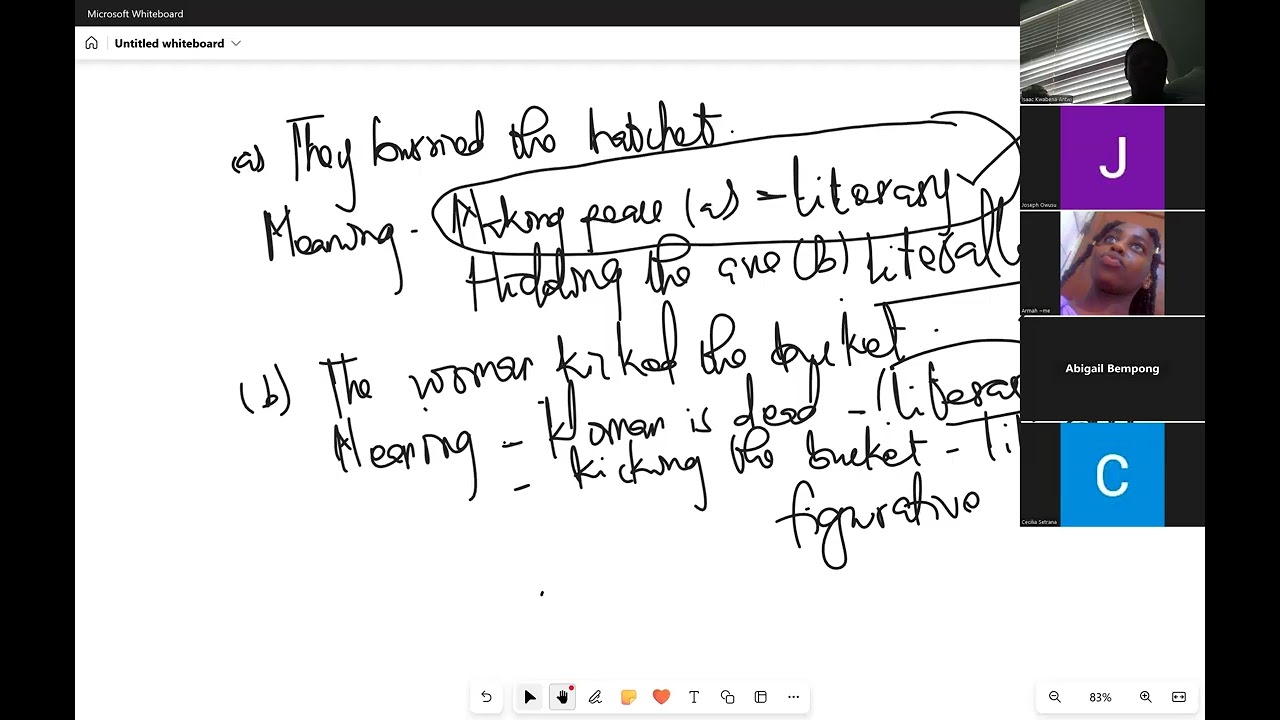 Microsoft Whiteboard
Untitled whiteboard
(a) They burried the hatchet.
Meaning - Making peace (a) = Literary
Hidding the axe (b) Literall
(b) The woman kicked the bucket.
Meaning - Woman is dead - (literar
- kicking the bucket - Lit
figurative
Isaac Kwabena Antwi
J
Joseph Owusu
Armah ~me
Abigail Bempong
C
Cecilia Setrana
T
83%